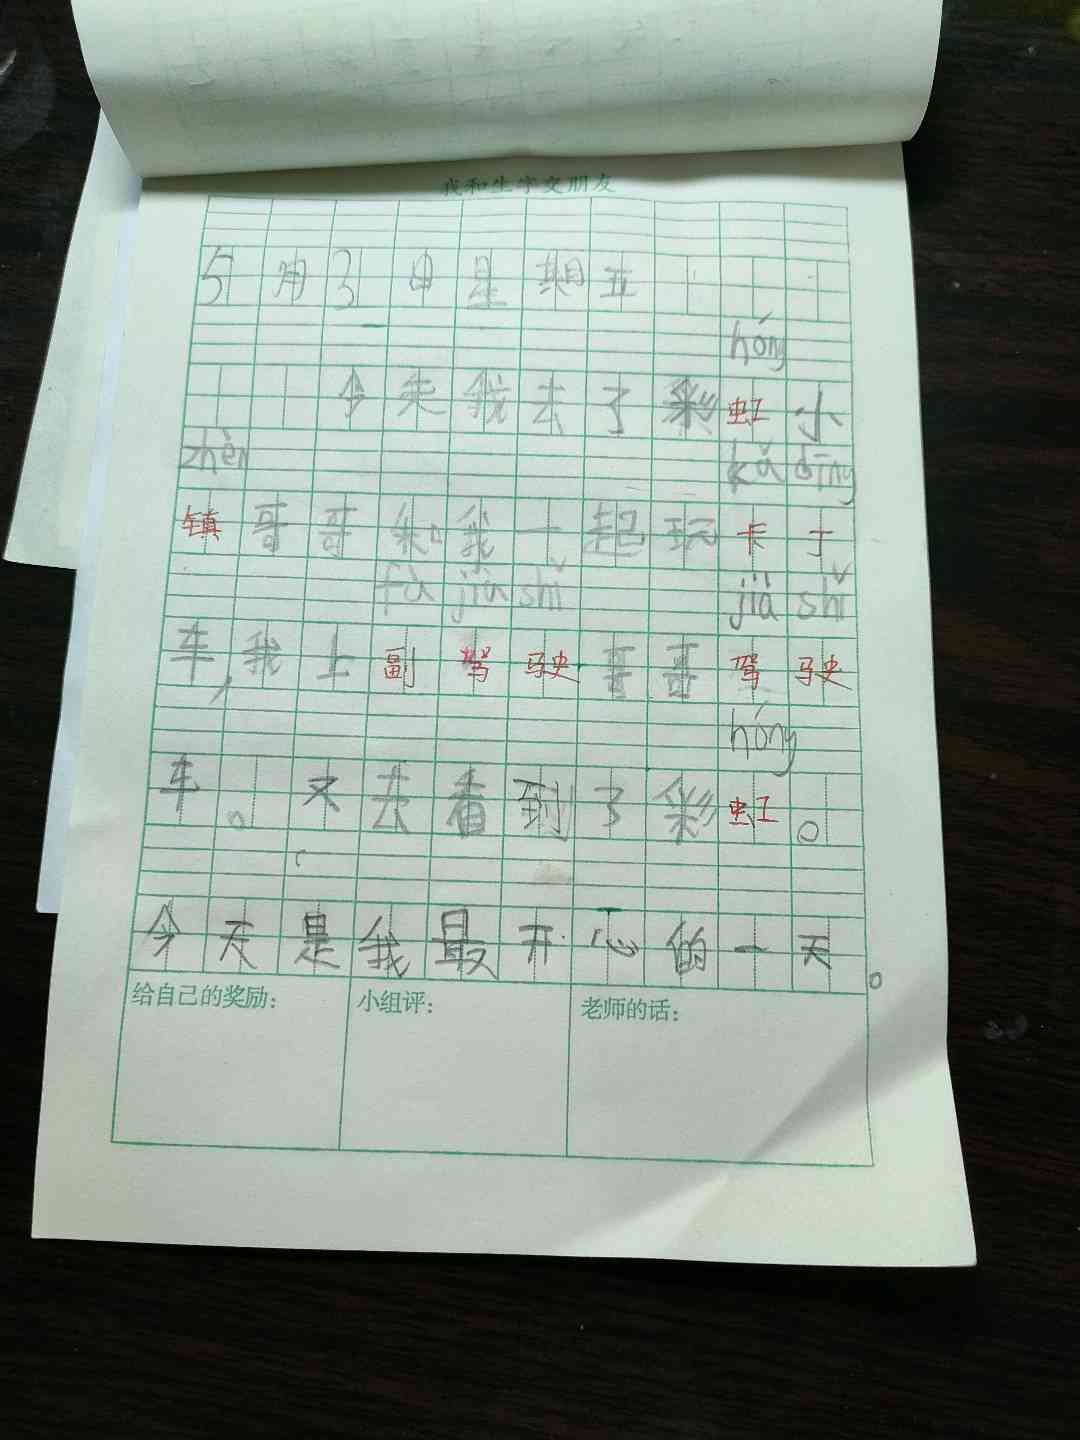 我和生字交朋友
5月3日星期五
hóng
今天我去了彩虹小
zhèn kǎ dīng
镇哥哥和我一起玩卡丁
fù jià shǐ jià shǐ
车,我上副驾驶哥哥驾驶
hóng
车。又去看到了彩虹。
今天是我最开心的一天。
给自己的奖励: 小组评: 老师的话: